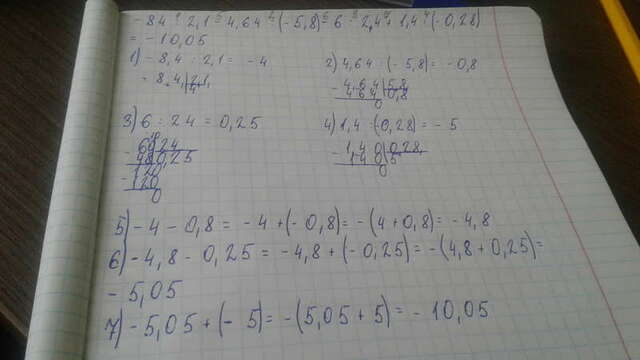 -84 : 2,1 + 4,64 : (-5,8) - 6 : 2,4 + 1,4 : (-0,28)
= -10,05
1) -8,4 : 2,1 = -4
2) 4,64 : (-5,8) = -0,8
8,4 2,1
4
4,64 5,8
464 0,8
0
3) 6 : 24 = 0,25
4) 1,4 : (-0,28) = -5
60 24
48 0,25
120
120
0
1,40 0,28
140 5
0
5) -4 - 0,8 = -4 + (-0,8) = -(4 + 0,8) = -4,8
6) -4,8 - 0,25 = -4,8 + (-0,25) = -(4,8 + 0,25) =
-5,05
7) -5,05 + (-5) = -(5,05 + 5) = -10,05